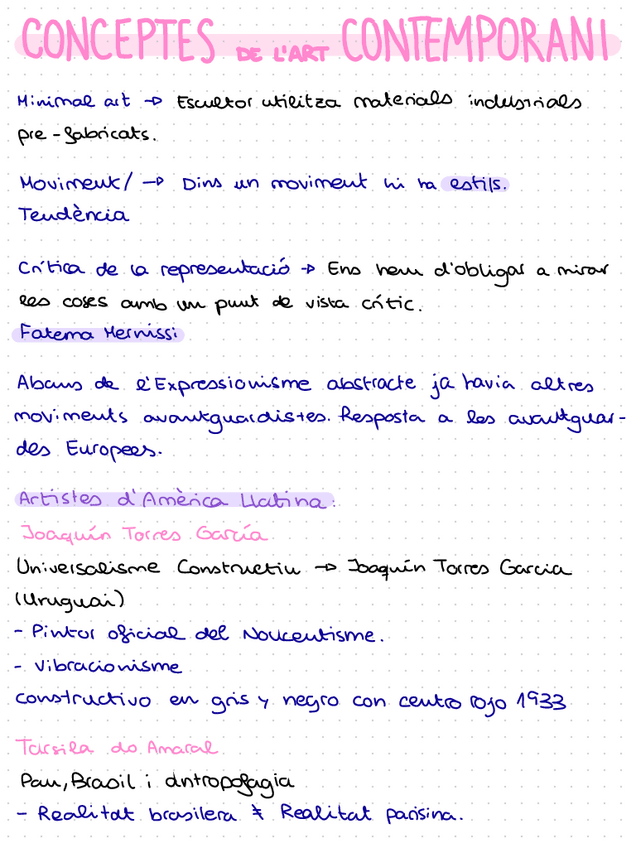 CONCEPTES DE L'ART CONTEMPORANI
Minimal art → Escultor utilitza materials industrials
pre-fabricats.
Moviment/ → Dins un moviment hi ha estils.
Tendència
Crítica de la representació → Ens hem d'obligar a mirar
les coses amb un punt de vista crític.
Fatema Mernissi
Abans de l'Expressionisme abstracte ja havia altres
moviments avantguardistes. Resposta a les avantguar-
des Europees.
Artistes d'Amèrica Llatina:
Joaquín Torres García
Universalisme Constructiu → Joaquín Torres Garcia
(Uruguai)
- Pintor oficial del Noucentisme.
- Vibracionisme
constructivo en gris y negro con centro rojo 1933
Tarsila do Amaral
Pau, Brasil i antropofagia
- Realitat brasilera ≠ Realitat parisina.